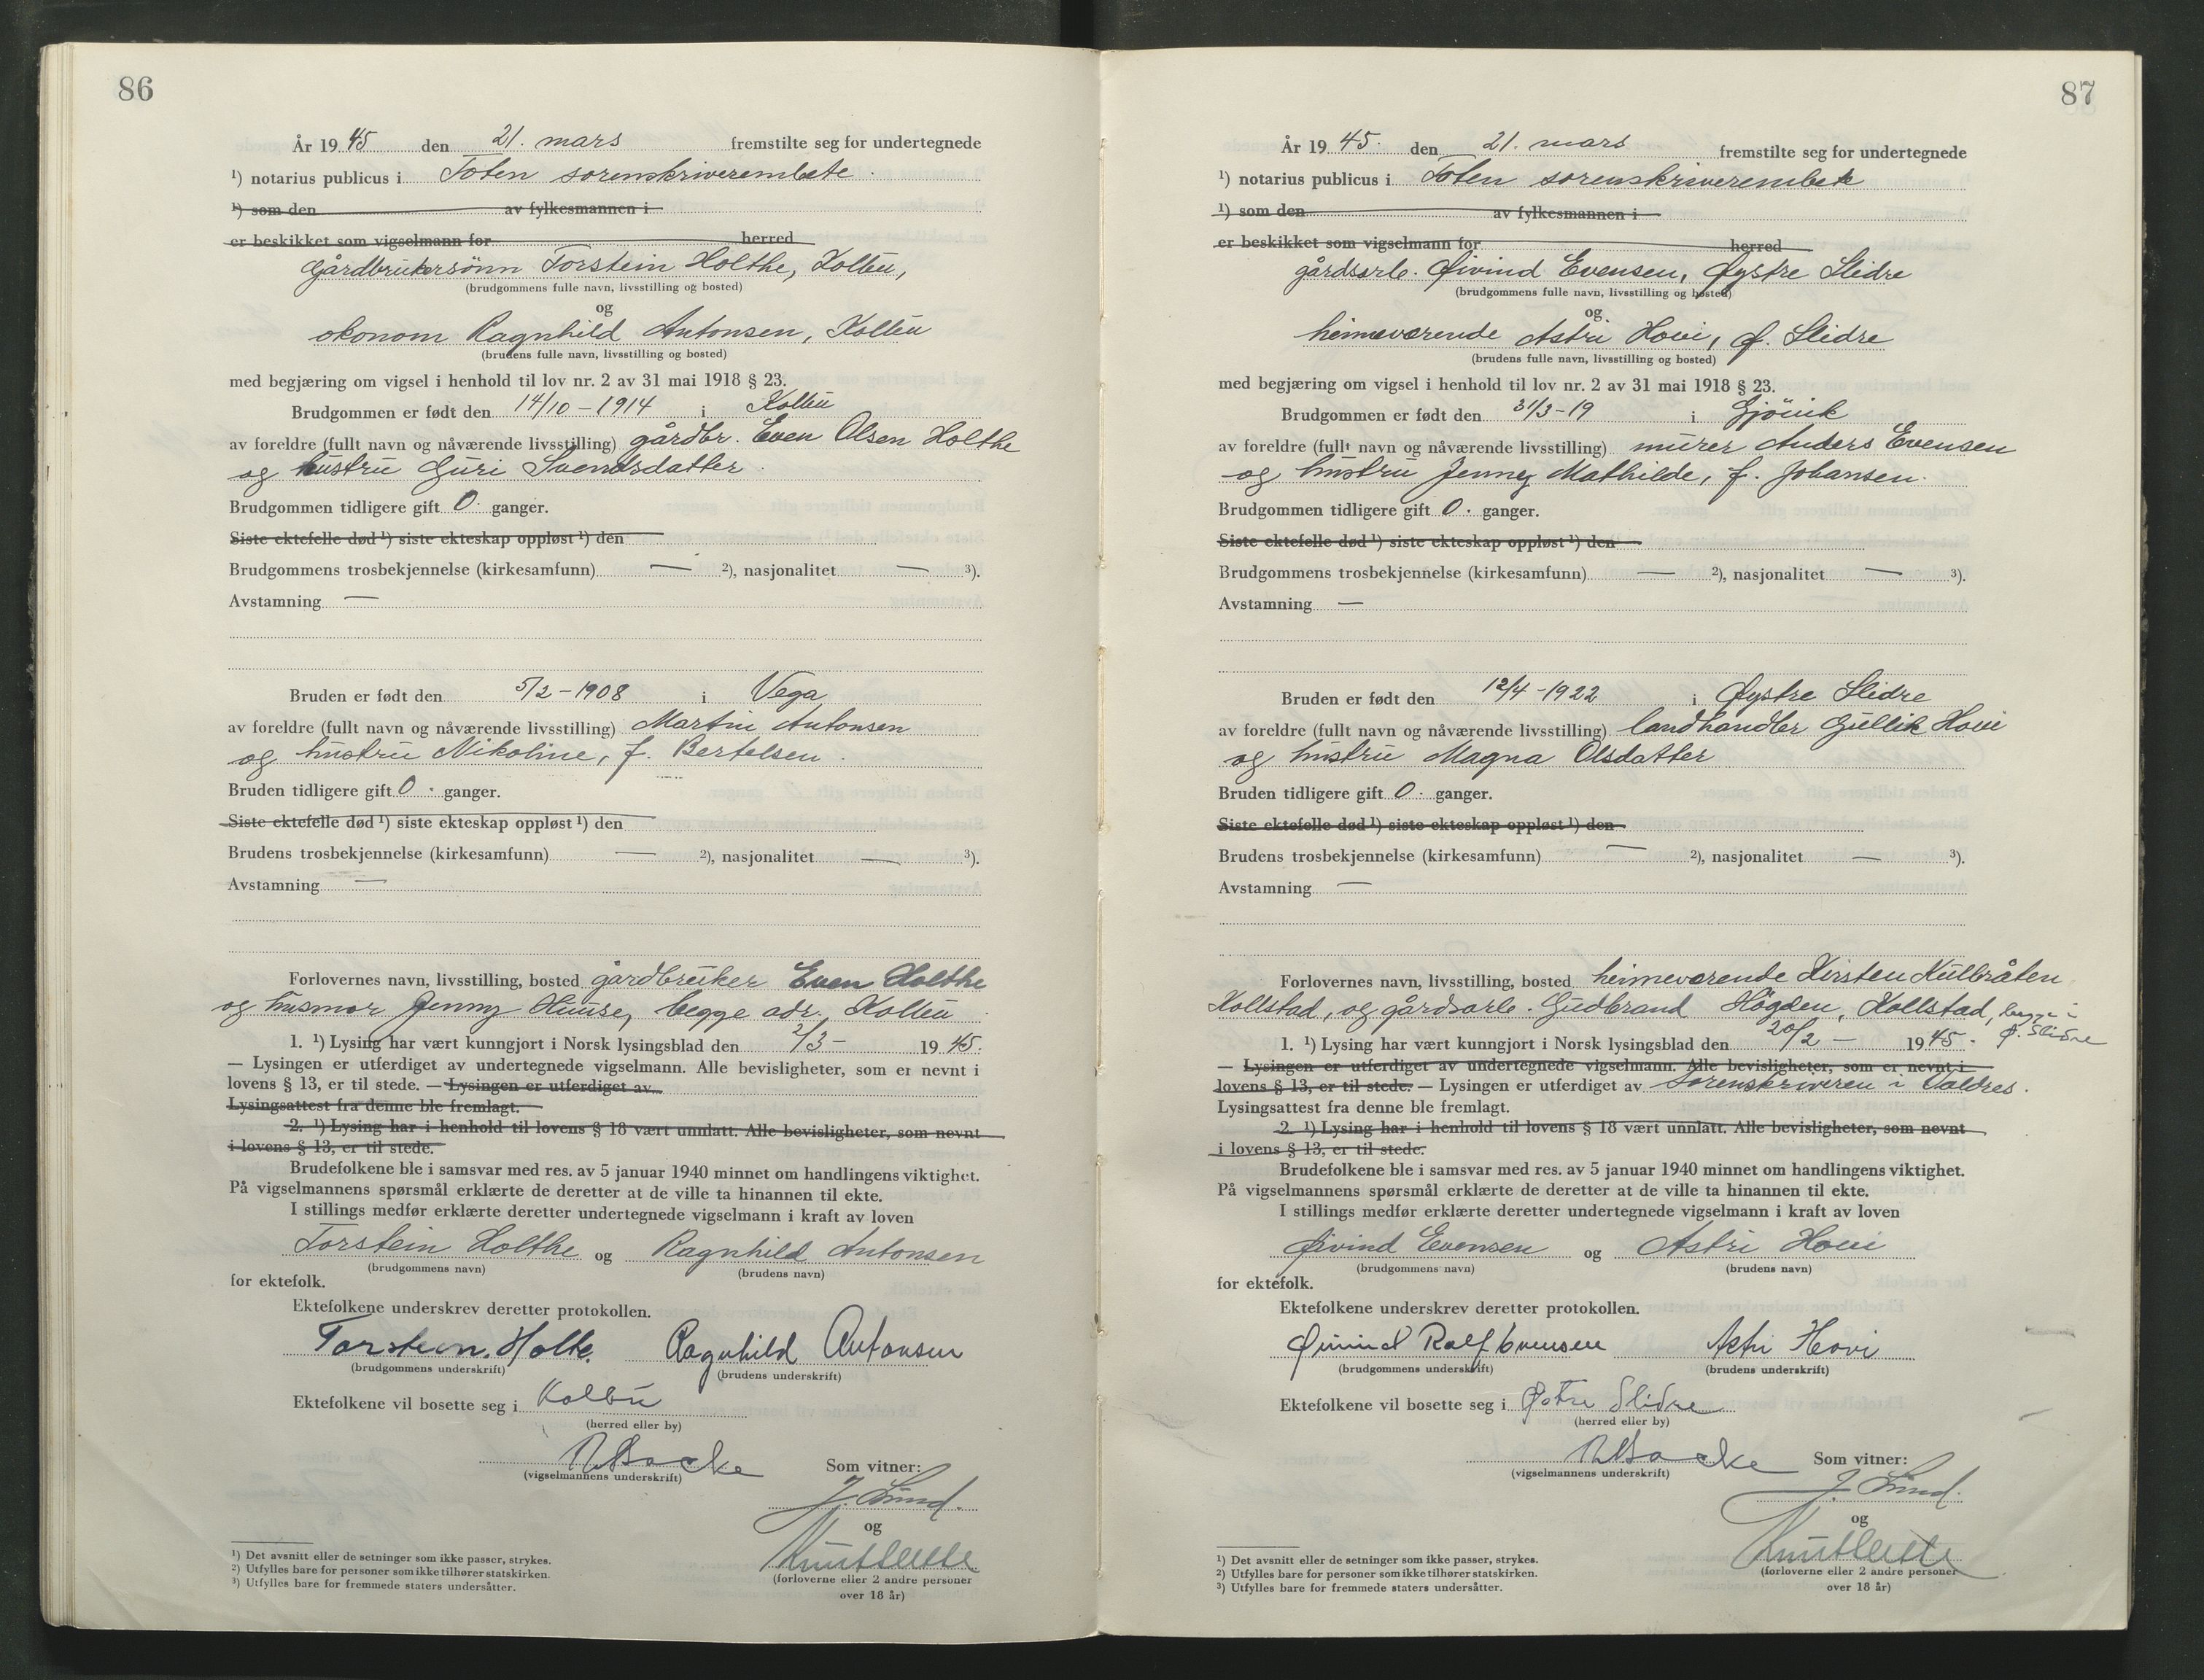 86
År 1945 den 21. mars fremstilte seg for undertegnede
¹) notarius publicus i Toten sorenskriverembete.
¹) som den av fylkesmannen i
er beskikket som vigselmann for herred
Gårdbrukersønn Torstein Holthe, Kolbu,
(brudgommens fulle navn, livsstilling og bosted)
og
økonom Ragnhild Antonsen, Kolbu
(brudens fulle navn, livsstilling og bosted)
med begjæring om vigsel i henhold til lov nr. 2 av 31 mai 1918 § 23.
Brudgommen er født den 14/10 - 1914 i Kolbu
av foreldre (fullt navn og nåværende livsstilling) gårdbr. Even Olsen Holthe
og hustru Guri Svendsdatter
Brudgommen tidligere gift 0. ganger.
Siste ektefelle død ¹) siste ekteskap oppløst ¹) den
Brudgommens trosbekjennelse (kirkesamfunn) — ²), nasjonalitet — ³).
Avstamning —
Bruden er født den 5/2 - 1908 i Vega
av foreldre (fullt navn og nåværende livsstilling) Martin Antonsen
og hustru Nikoline, f. Bertelsen.
Bruden tidligere gift 0. ganger.
Siste ektefelle død ¹) siste ekteskap oppløst ¹) den
Brudens trosbekjennelse (kirkesamfunn) — ²), nasjonalitet — ³).
Avstamning —
Forlovernes navn, livsstilling, bosted gårdbruker Even Holthe
og husmor Jenny Huuse, begge adr. Kolbu
1. ¹) Lysing har vært kunngjort i Norsk lysingsblad den 2/3 - 1945.
— Lysingen er utferdiget av undertegnede vigselmann. Alle bevisligheter, som er nevnt i
lovens § 13, er til stede. — Lysingen er utferdiget av
Lysingsattest fra denne ble fremlagt.
2. ¹) Lysing har i henhold til lovens § 18 vært unnlatt. Alle bevisligheter, som nevnt
i lovens § 13, er til stede.
Brudefolkene ble i samsvar med res. av 5 januar 1940 minnet om handlingens viktighet.
På vigselmannens spørsmål erklærte de deretter at de ville ta hinannen til ekte.
I stillings medfør erklærte deretter undertegnede vigselmann i kraft av loven
Torstein Holthe og Ragnhild Antonsen
(brudgommens navn) (brudens navn)
for ektefolk.
Ektefolkene underskrev deretter protokollen.
Torstein Holte. Ragnhild Antonsen
(brudgommens underskrift) (brudens underskrift)
Ektefolkene vil bosette seg i Kolbu
(herred eller by)
(vigselmannens underskrift) Som vitner:
J. Lund.
og
(forloverne eller 2 andre personer
over 18 år)
¹) Det avsnitt eller de setninger som ikke passer, strykes.
²) Utfylles bare for personer som ikke tilhører statskirken.
³) Utfylles bare for fremmede staters undersåtter.
87
År 1945. den 21. mars fremstilte seg for undertegnede
¹) notarius publicus i Toten sorenskriverembete
¹) som den av fylkesmannen i
er beskikket som vigselmann for herred
gårdsarb. Øivind Evensen, Øystre Slidre
(brudgommens fulle navn, livsstilling og bosted)
og
heimeværende Astri Hovi, Ø. Slidre
(brudens fulle navn, livsstilling og bosted)
med begjæring om vigsel i henhold til lov nr. 2 av 31 mai 1918 § 23.
Brudgommen er født den 31/3 - 19 i Gjövik
av foreldre (fullt navn og nåværende livsstilling) murer Anders Evensen
og hustru Jenny Mathilde, f. Johansen.
Brudgommen tidligere gift 0. ganger.
Siste ektefelle død ¹) siste ekteskap oppløst ¹) den
Brudgommens trosbekjennelse (kirkesamfunn) — ²), nasjonalitet — ³).
Avstamning —
Bruden er født den 12/4 - 1922 i Øystre Slidre
av foreldre (fullt navn og nåværende livsstilling) landhandler Gullik Hovi
og hustru Magna Olsdatter
Bruden tidligere gift 0. ganger.
Siste ektefelle død ¹) siste ekteskap oppløst ¹) den
Brudens trosbekjennelse (kirkesamfunn) — ²), nasjonalitet — ³).
Avstamning —
Forlovernes navn, livsstilling, bosted heimeværende Kirsten Kulbråten
Kollstad, og gårdsarb. Gudbrand Högden, Kollstad, begge i
Ø. Slidre
1. ¹) Lysing har vært kunngjort i Norsk lysingsblad den 20/2 - 1945.
— Lysingen er utferdiget av undertegnede vigselmann. Alle bevisligheter, som er nevnt i
lovens § 13, er til stede. — Lysingen er utferdiget av Sorenskriveren i Valdres.
Lysingsattest fra denne ble fremlagt.
2. ¹) Lysing har i henhold til lovens § 18 vært unnlatt. Alle bevisligheter, som nevnt
i lovens § 13, er til stede.
Brudefolkene ble i samsvar med res. av 5 januar 1940 minnet om handlingens viktighet.
På vigselmannens spørsmål erklærte de deretter at de ville ta hinannen til ekte.
I stillings medfør erklærte deretter undertegnede vigselmann i kraft av loven
Øivind Evensen og Astri Hovi
(brudgommens navn) (brudens navn)
for ektefolk.
Ektefolkene underskrev deretter protokollen.
Øivind Rolf Evensen Astri Hovi
(brudgommens underskrift) (brudens underskrift)
Ektefolkene vil bosette seg i Østre Slidre
(herred eller by)
(vigselmannens underskrift) Som vitner:
J. Lund.
og
(forloverne eller 2 andre personer
over 18 år)
¹) Det avsnitt eller de setninger som ikke passer, strykes.
²) Utfylles bare for personer som ikke tilhører statskirken.
³) Utfylles bare for fremmede staters undersåtter.